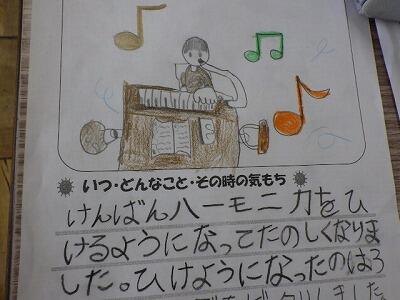 いつ・どんなこと・その時の気もち
けんばんハーモニカをひ
けるようになってたのしくなりま
した。ひけようになったのは3